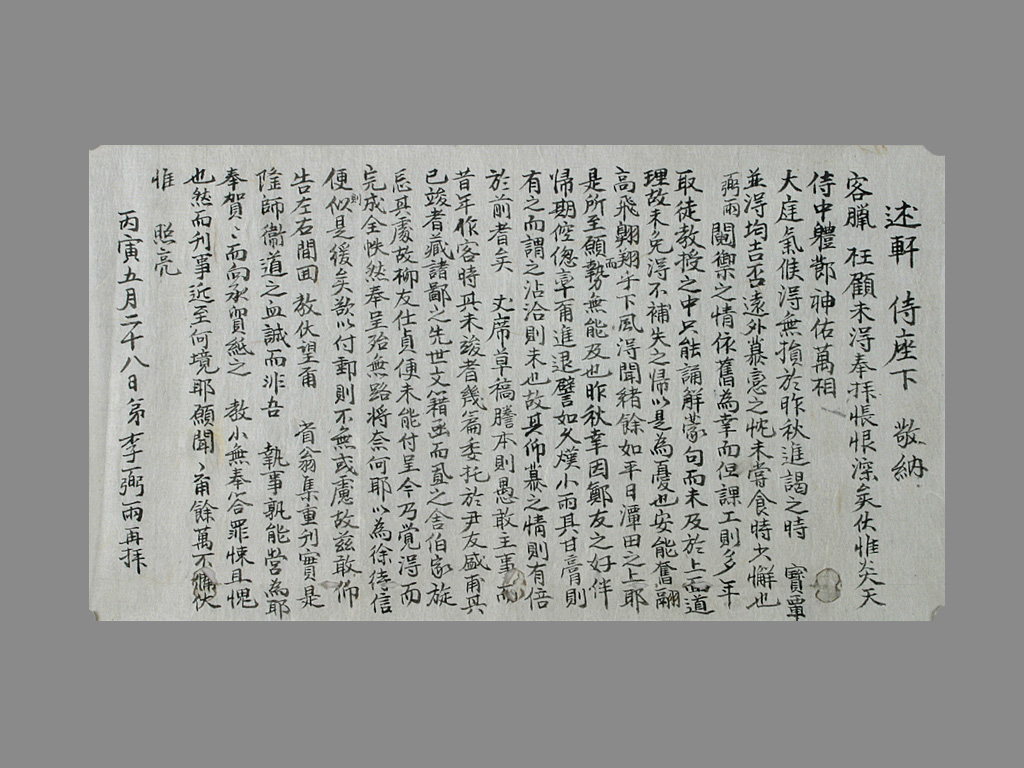 述軒 侍座下 敬納
客臘 枉顧未得奉拜悵恨深矣伏惟炎天
侍中體節神佑萬相
大庭氣候得無損於昨秋進謁之時 寶覃
並得均吉否遠外慕戀之忱未嘗食時少懈也
弼雨 闔禦之情依舊為幸而但課工則多年
取徒教授之中只能誦解蒙句而未及於上面道
理故未免得不補失之歸以是為憂也安能奮翮
高飛翺翔乎下風得聞緒餘如平日潭田之上耶
是所至願而勢無能及也昨秋幸因鄭友之好伴
歸期倥偬草甫進退譬如久熯小雨其甘膏則
有之而謂之沾洽則未也故其仰慕之情則有倍
於前者矣 丈席草稿謄本則愚敢主事而
昔年作客時其未竣者幾篇委托於尹友盛甫其
已竣者藏諸鄙之先世文籍凾而置之舍伯家旋
忘其處故柳友仕貞便未能付呈今乃覚得而
完成全帙然奉呈殆無路將奈何耶以為徐待信
便則似是緩矣欲以付郵則不無或慮故茲敢仰
告左右間回 教伏望甫 省翁集重刊實是
隆師衛道之血誠而非吾 執事孰能營為耶
奉賀〻而向承賀緘之 教小無奉答罪悚且愧
也然而刊事近至何境耶願聞〻甫餘萬不備伏
惟 照亮
丙寅五月二十八日弟李弼雨再拜